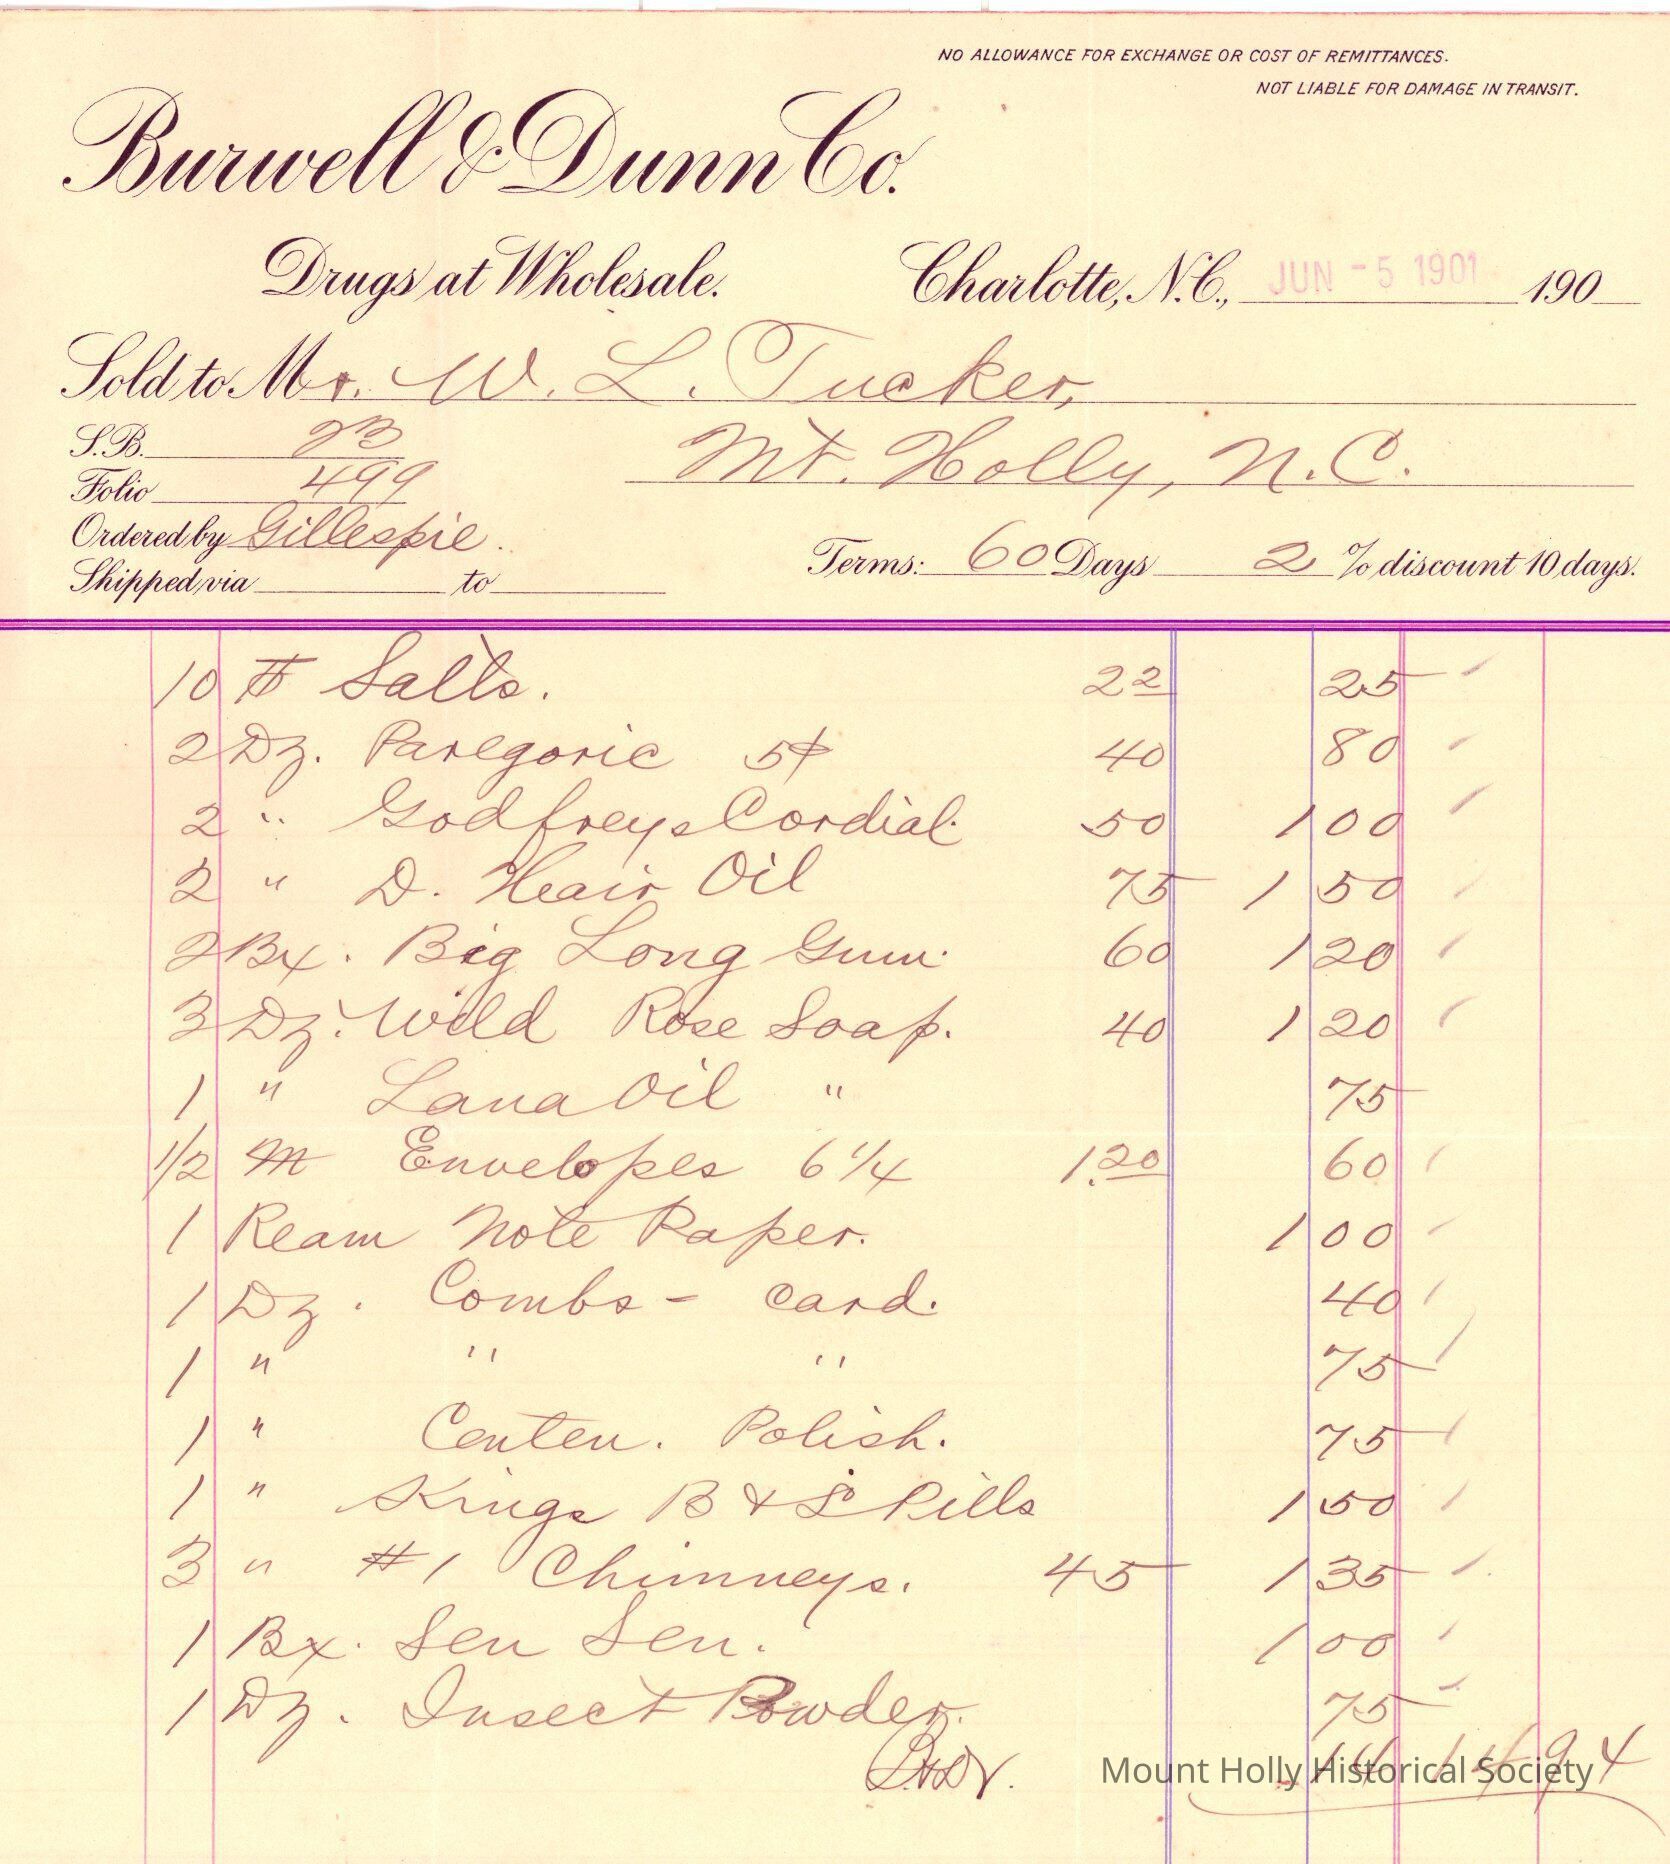 NO ALLOWANCE FOR EXCHANGE OR COST OF REMITTANCES.
NOT LIABLE FOR DAMAGE IN TRANSIT.
Burwell & Dunn Co.
Drugs at Wholesale. Charlotte, N.C., JUN -5 1901 190
Sold to Mr. W. L. Tucker,
S.B. 23
Mt. Holly, N.C.
Folio 499
Ordered by Gillespie.
Terms: 60 Days 2 % discount 10 days.
Shipped via to
10 # Salts. 22 25
2 Dz. Paregoric 5¢ 40 80
2 " Godfreys Cordial. 50 1 00
2 " D. Hair Oil 75 1 50
2 Bx. Big Long Gum. 60 1 20
3 Dz. Wild Rose Soap. 40 1 20
1 " Lana Oil " 75
1/2 M Envelopes 6 1/4 1.20 60
1 Ream Note Paper. 1 00
1 Dz. Combs - card. 40
1 " " " 75
1 " Centen. Polish. 75
1 " Kings B & L Pills 1 50
3 " #1 Chimneys. 45 1 35
1 Bx. Sen Sen. 1 00
1 Dz. Insect Powder. 75
14 94
Mount Holly Historical Society